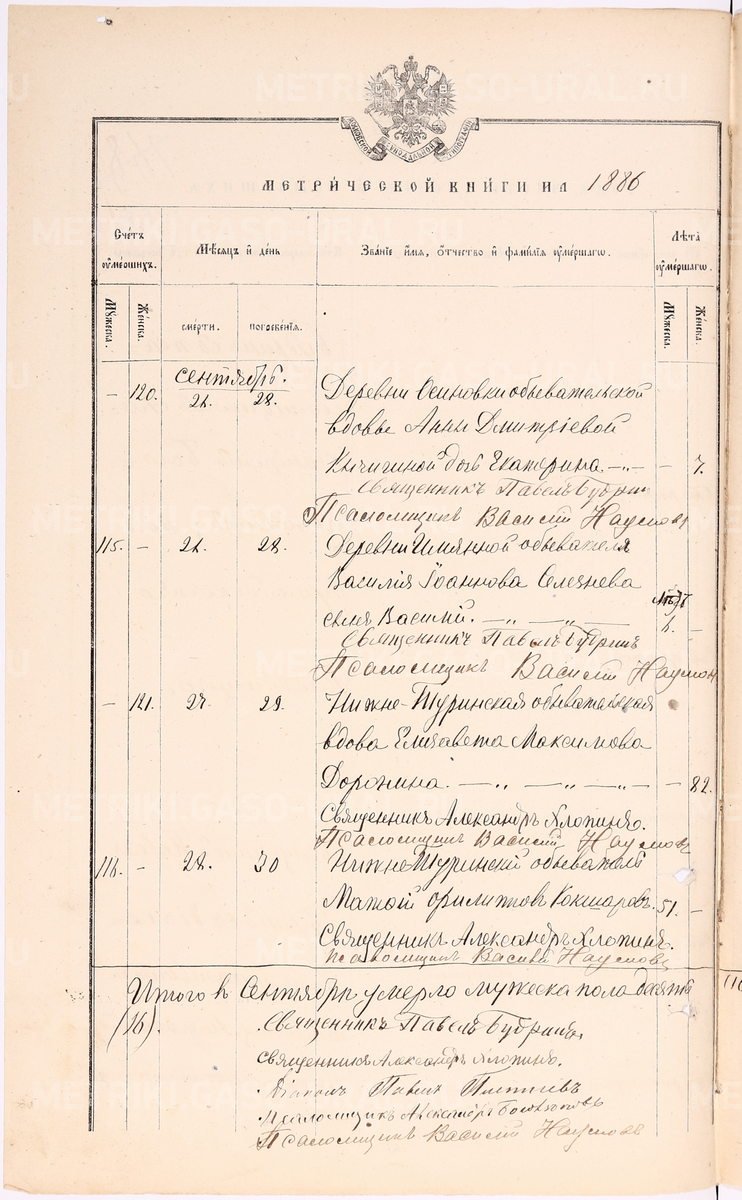 МЕТРИ́ЧЕСКОЙ КНИ́ГИ НА 1886
Сче́тъ
ѹме́ршихъ.
Мѣ́сяцъ и́ де́нь
Зва́нїе и́мя, ѻ́тчество и́ фами́лїя ѹме́ршагѡ.
Лѣ́та
ѹме́ршагѡ.
Мꙋ́жеска.
Же́нска.
сме́рти.
погребе́нїя.
Мꙋ́жеска.
Же́нска.
Сентябрь.
— 120. 28. Деревни Осиновки обывательской
вдовы Анны Дмитріевой
Кичигиной дочь Екатерина. —„— — 7.
Священникъ Павелъ
Псаломщикъ Василій Наумовъ
115. — 28. Деревни Имянной обывателя
Василія Іоаннова Селезнева
сынъ Василій. —„— —„—
Священникъ Павелъ
Псаломщикъ Василій Наумовъ
— 121. 27. 29. Нижне-Туринская обывательская
вдова Елизавета Максимова
Доронина. —„— —„— —„— — 82.
Священникъ Александръ Хлопинъ.
Псаломщикъ Василій Наумовъ
116. — 28. 30 Нижне Туринскій обыватель
Матѳій Филиповъ Кокшаровъ. 51. —
Священникъ Александръ Хлопинъ.
Псаломщикъ Василій Наумовъ
Итого въ Сентябрѣ умерло мужеска пола десять
(16).
Священникъ Павелъ
Священникъ Александръ Хлопинъ.
Діаконъ Павелъ
Псаломщикъ Александръ
Псаломщикъ Василій Наумовъ